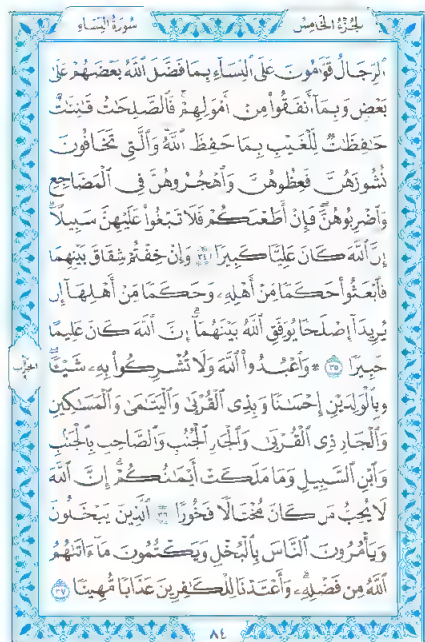 الجزء الخامس
سورة النساء
الرِّجَالُ قَوَّٰمُونَ عَلَى النِّسَآءِ بِمَا فَضَّلَ اللَّهُ بَعْضَهُمْ عَلَىٰ
بَعْضٍ وَبِمَآ أَنفَقُوا۟ مِنْ أَمْوَٰلِهِمْ فَالصَّٰلِحَٰتُ قَٰنِتَٰتٌ
حَٰفِظَٰتٌ لِّلْغَيْبِ بِمَا حَفِظَ اللَّهُ وَالَّٰتِي تَخَافُونَ
نُشُوزَهُنَّ فَعِظُوهُنَّ وَاهْجُرُوهُنَّ فِي الْمَضَاجِعِ
وَاضْرِبُوهُنَّ فَإِنْ أَطَعْنَكُمْ فَلَا تَبْغُوا۟ عَلَيْهِنَّ سَبِيلًا
إِنَّ اللَّهَ كَانَ عَلِيًّا كَبِيرًا ٣٤ وَإِنْ خِفْتُمْ شِقَاقَ بَيْنِهِمَا
فَابْعَثُوا۟ حَكَمًا مِّنْ أَهْلِهِۦ وَحَكَمًا مِّنْ أَهْلِهَآ إِن
يُرِيدَآ إِصْلَٰحًا يُوَفِّقِ اللَّهُ بَيْنَهُمَآ إِنَّ اللَّهَ كَانَ عَلِيمًا
خَبِيرًا ٣٥ ۞ وَاعْبُدُوا۟ اللَّهَ وَلَا تُشْرِكُوا۟ بِهِۦ شَيْـًٔا
وَبِالْوَٰلِدَيْنِ إِحْسَٰنًا وَبِذِي الْقُرْبَىٰ وَالْيَتَٰمَىٰ وَالْمَسَٰكِينِ
وَالْجَارِ ذِي الْقُرْبَىٰ وَالْجَارِ الْجُنُبِ وَالصَّاحِبِ بِالْجَنۢبِ
وَابْنِ السَّبِيلِ وَمَا مَلَكَتْ أَيْمَٰنُكُمْ إِنَّ اللَّهَ
لَا يُحِبُّ مَن كَانَ مُخْتَالًا فَخُورًا ٣٦ الَّذِينَ يَبْخَلُونَ
وَيَأْمُرُونَ النَّاسَ بِالْبُخْلِ وَيَكْتُمُونَ مَآ ءَاتَىٰهُمُ
اللَّهُ مِن فَضْلِهِۦ وَأَعْتَدْنَا لِلْكَٰفِرِينَ عَذَابًا مُّهِينًا ٣٧
الحزب
٨٤